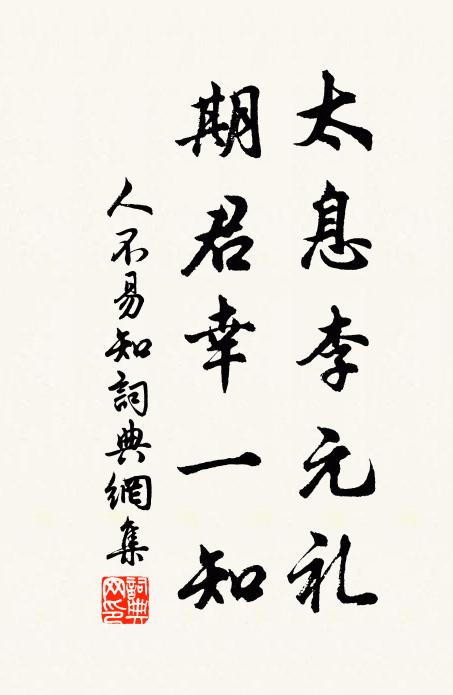 太息李元礼
期君幸一知
人不易知詞典網集
詞典
网印